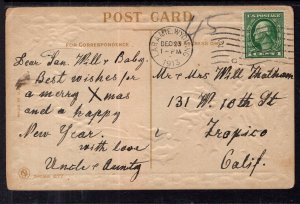 POST CARD
FOR CORRESPONDENCE
Dear Fan, Will & Baby.
Best wishes for
a merry Xmas
and a happy
New Year.
with love
Uncle & Aunty
LARAMIE, WYO.
DEC 23
1-PM
1913
U.S. POSTAGE
Mr & Mrs Will Thatham
131 W. 10th St
Tropico
Calif.